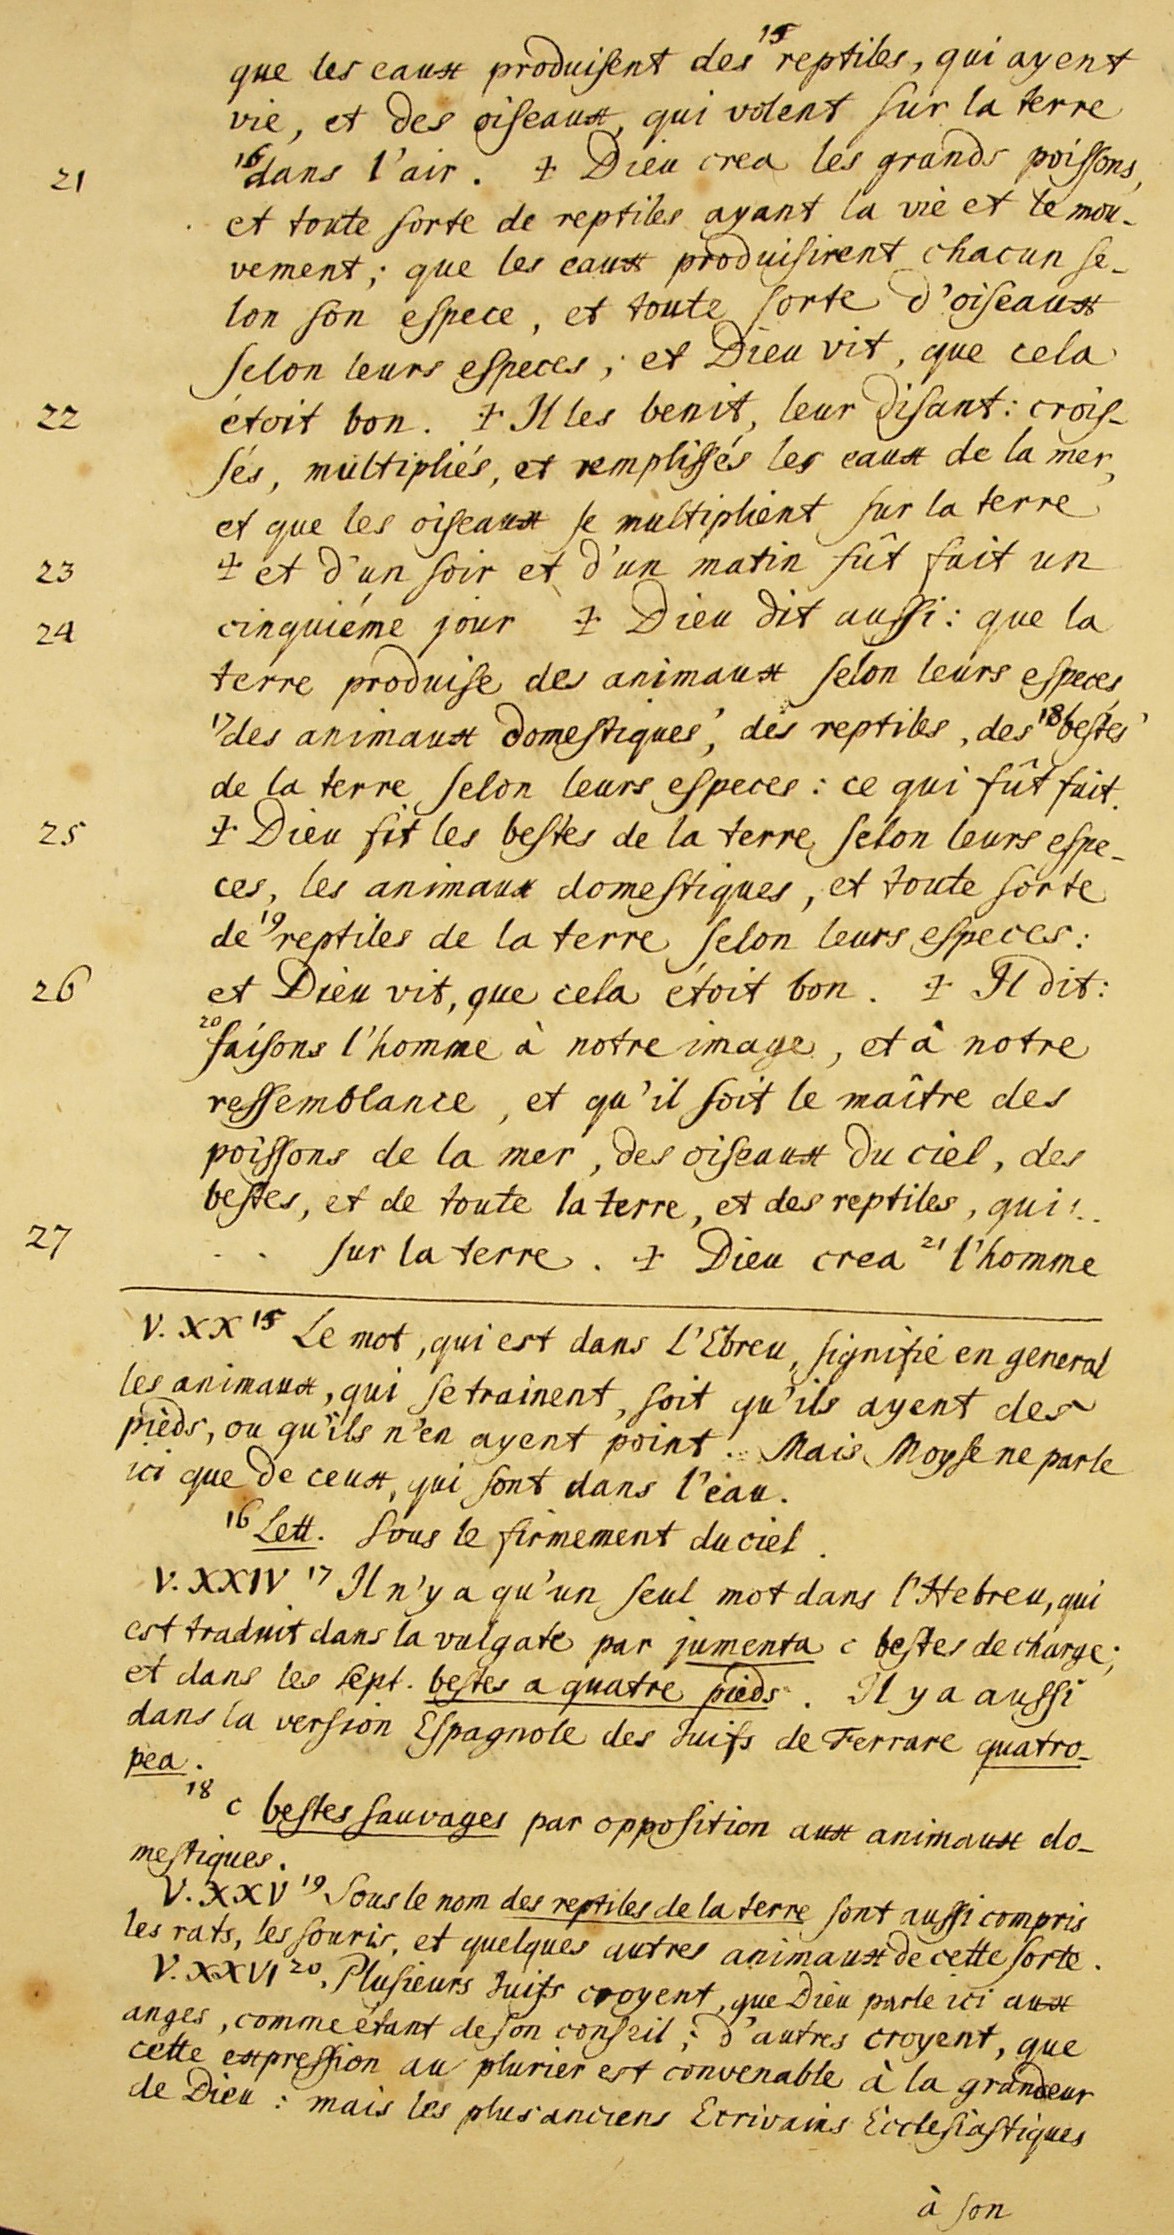 que les eaux produisent des ¹⁵ reptiles, qui ayent
vie, et des oiseaux, qui volent sur la terre
21 ¹⁶ dans l'air. ‡ Dieu crea les grands poissons,
et toute sorte de reptiles ayant la vie et le mou-
vement; que les eaux produisirent chacun se-
lon son espece, et toute sorte d'oiseaux
selon leurs especes; et Dieu vit, que cela
22 étoit bon. ‡ Il les benit, leur disant: crois-
sés, multipliés, et remplissés les eaux de la mer,
et que les oiseaux se multiplient sur la terre
23 ‡ et d'un soir et d'un matin fût fait un
24 cinquiéme jour ‡ Dieu dit aussi: que la
terre produise des animaux selon leurs especes
¹⁷ des animaux domestiques, des reptiles, des ¹⁸ bestes
de la terre selon leurs especes: ce qui fût fait.
25 ‡ Dieu fit les bestes de la terre selon leurs espe-
ces, les animaux domestiques, et toute sorte
de ¹⁹ reptiles de la terre selon leurs especes:
26 et Dieu vit, que cela étoit bon. ‡ Il dit:
²⁰ faisons l'homme à notre image, et à notre
ressemblance, et qu'il soit le maître des
poissons de la mer, des oiseaux du ciel, des
bestes, et de toute la terre, et des reptiles, qui
27 sur la terre. ‡ Dieu crea ²¹ l'homme
V. XX ¹⁵ Le mot, qui est dans L'Ebreu, signifie en general
les animaux, qui se trainent, soit qu'ils ayent des
pieds, ou qu'ils n'en ayent point. Mais Moyse ne parle
ici que de ceux, qui sont dans l'eau.
¹⁶ Lett. Sous le firmement du ciel.
V. XXIV ¹⁷ Il n'y a qu'un seul mot dans l'Hebreu, qui
est traduit dans la vulgate par jumenta c bestes de charge;
et dans les sept. bestes a quatre pieds. Il y a aussi
dans la version Espagnole des Juifs de Ferrare quatro-
pea.
¹⁸ c bestes sauvages par opposition aux animaux do-
mestiques.
V. XXV ¹⁹ Sous le nom des reptiles de la terre sont aussi compris
les rats, les souris, et quelques autres animaux de cette sorte.
V. XXVI ²⁰. Plusieurs Juifs croyent, que Dieu parle ici aux
anges, comme étant de son conseil; d'autres croyent, que
cette expression au plurier est convenable à la grandeur
de Dieu: mais les plus anciens Ecrivains Ecclesiastiques
à son